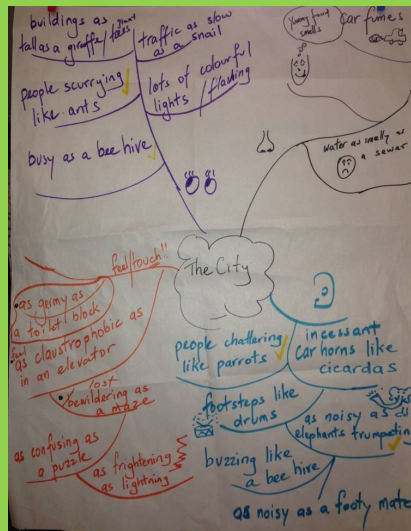 buildings as
tall as a giraffe/
giant
traffic as slow
as a snail
people scurrying
like ants
lots of colourful
lights / flashing
busy as a bee hive
Yummy food
smells
car fumes
water as smelly as
a sewer
The City
feel/touch!!
as germy as
a toilet block
feel
as claustrophobic as
in an elevator
lost
bewildering as
a maze
as confusing as
a puzzle
as frightening
as lightning
people chattering
like parrots
incessant
car horns like
cicardas
footsteps like
drums
as noisy as
elephants trumpeting
buzzing like
a bee hive
as noisy as a footy